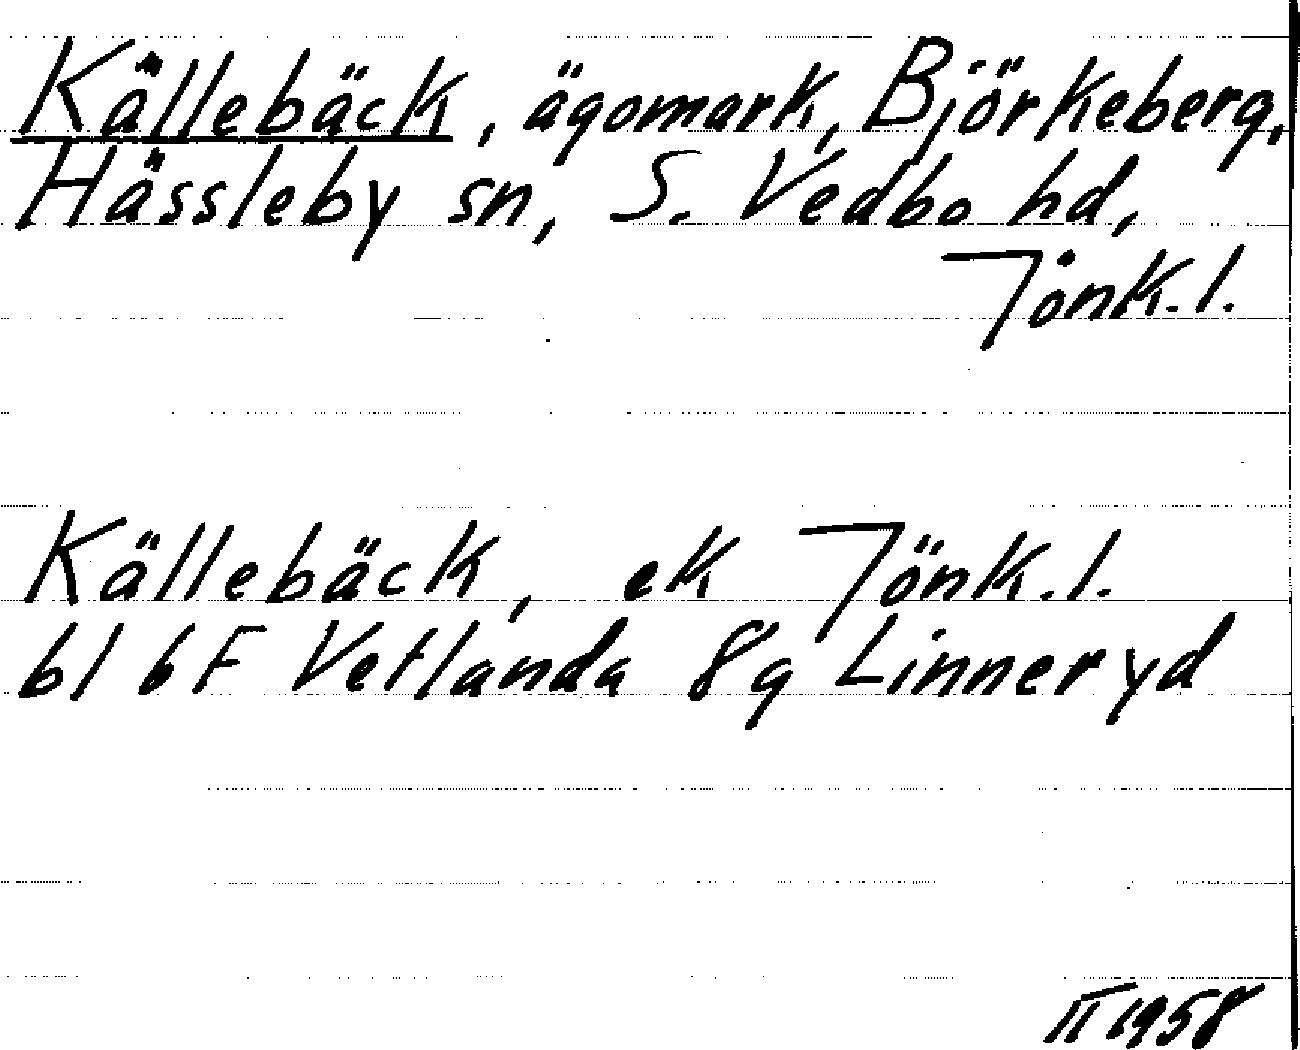 Källebäck, ägomark, Björkeberg,
Hässleby sn, S. Vedbo hd,
Jönk. l.
Källebäck, ek Jönk. l.
bl 6F Vetlanda 8g Linneryd
II 1958